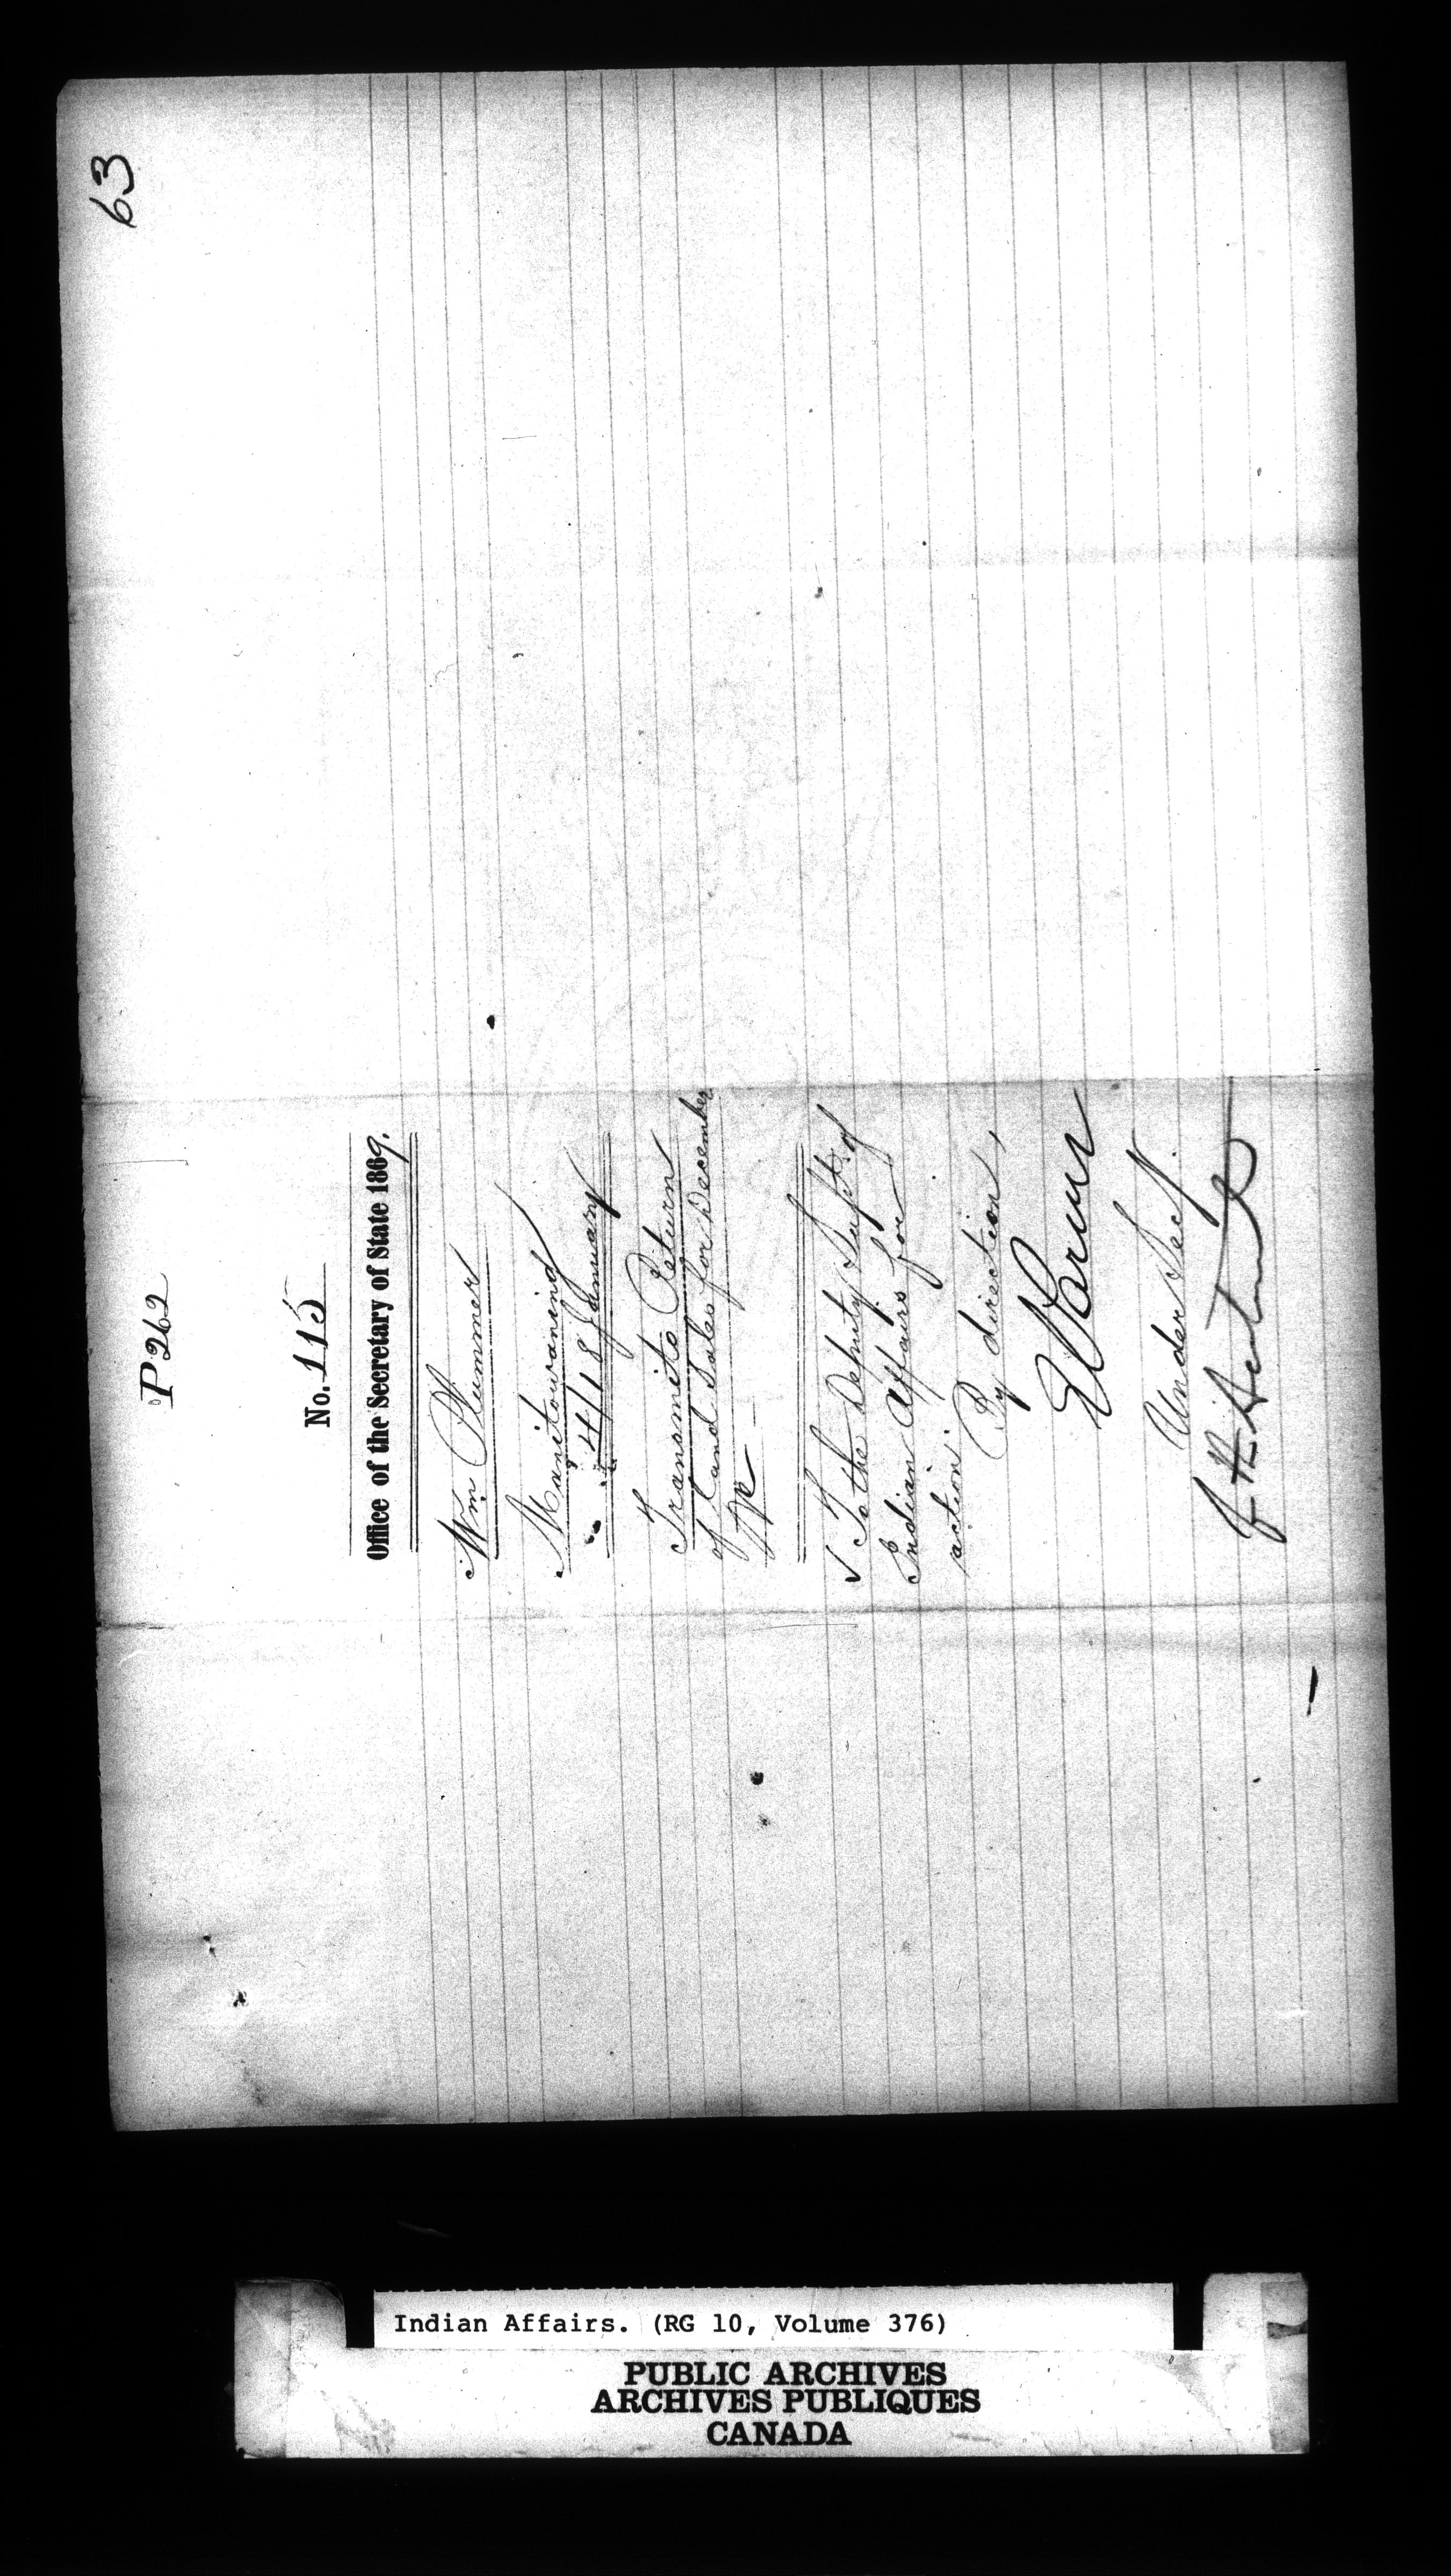 63
P 262
No. 115
Office of the Secretary of State 1869.
Wm Plummer
Manitowaning
4/18 January
Transmits Return
of Land Sales for December
&c
To the Deputy Supt. of
Indian Affairs for
action.
By direction,
E Parent
Under Secy.
Indian Affairs. (RG 10, Volume 376)
PUBLIC ARCHIVES
ARCHIVES PUBLIQUES
CANADA